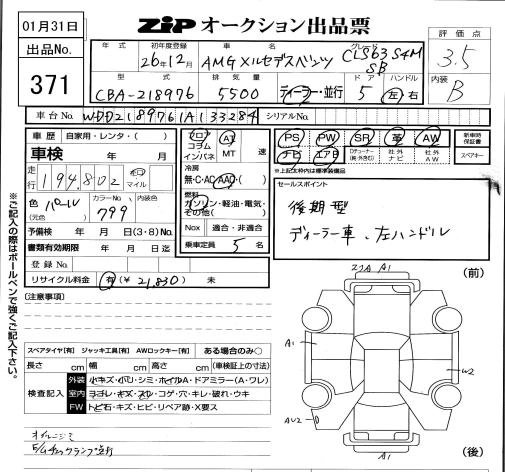 01月31日
出品No.
371
ZIP オークション出品票
評価点
3.5
内装
B
年式 初年度登録 車名 グレード
26年12月 AMG×ルセデスベンツ CLS63 S4M SB
型式 排気量 ドア ハンドル
CBA-218976 5500 ディーラー・並行 5 左 右
車台No. WDD2189761A133284 シリアルNo.
車歴 自家用・レンタ・( )
車検 年 月
走行 194,802 キロ マイル
色 (元色) カラーNo. 799 内装色
予備検 年 月 日(3・8)No.
書類有効期限 年 月 日迄
登録No.
リサイクル料金 有(¥21,830) 未
フロア コラム インパネ
AT MT 速
冷房
無・C・AC・AAC・( )
燃料
ガソリン・軽油・電気・その他( )
Nox 適合・非適合
乗車定員 5 名
PS PW SR 革 AW
ナビ エアB Dチューナー(具・外含む) 社外ナビ 社外AW
新車時保証書
スペアキー
※上記太枠内は標準装備品
セールスポイント
後期型
ディーラー車、左ハンドル
※ご記入の際はボールペンで強くご記入下さい。
[注意事項]
スペアタイヤ[有] ジャッキ工具[有] AWロックキー[有] ある場合のみ○
長さ cm 幅 cm 高さ cm (車検証上の寸法)
検査記入
外装 小キズ・小ヘコ・シミ・ホイルA・ドアミラー(A・ワレ)
室内 ヨゴレ・キズ・スレ・コゲ・穴・キレ・破れ・ウキ
FW トビ石・キズ・ヒビ・リペア跡・X要ス
(前)
A1
A1
W2
AU2
A1
(後)